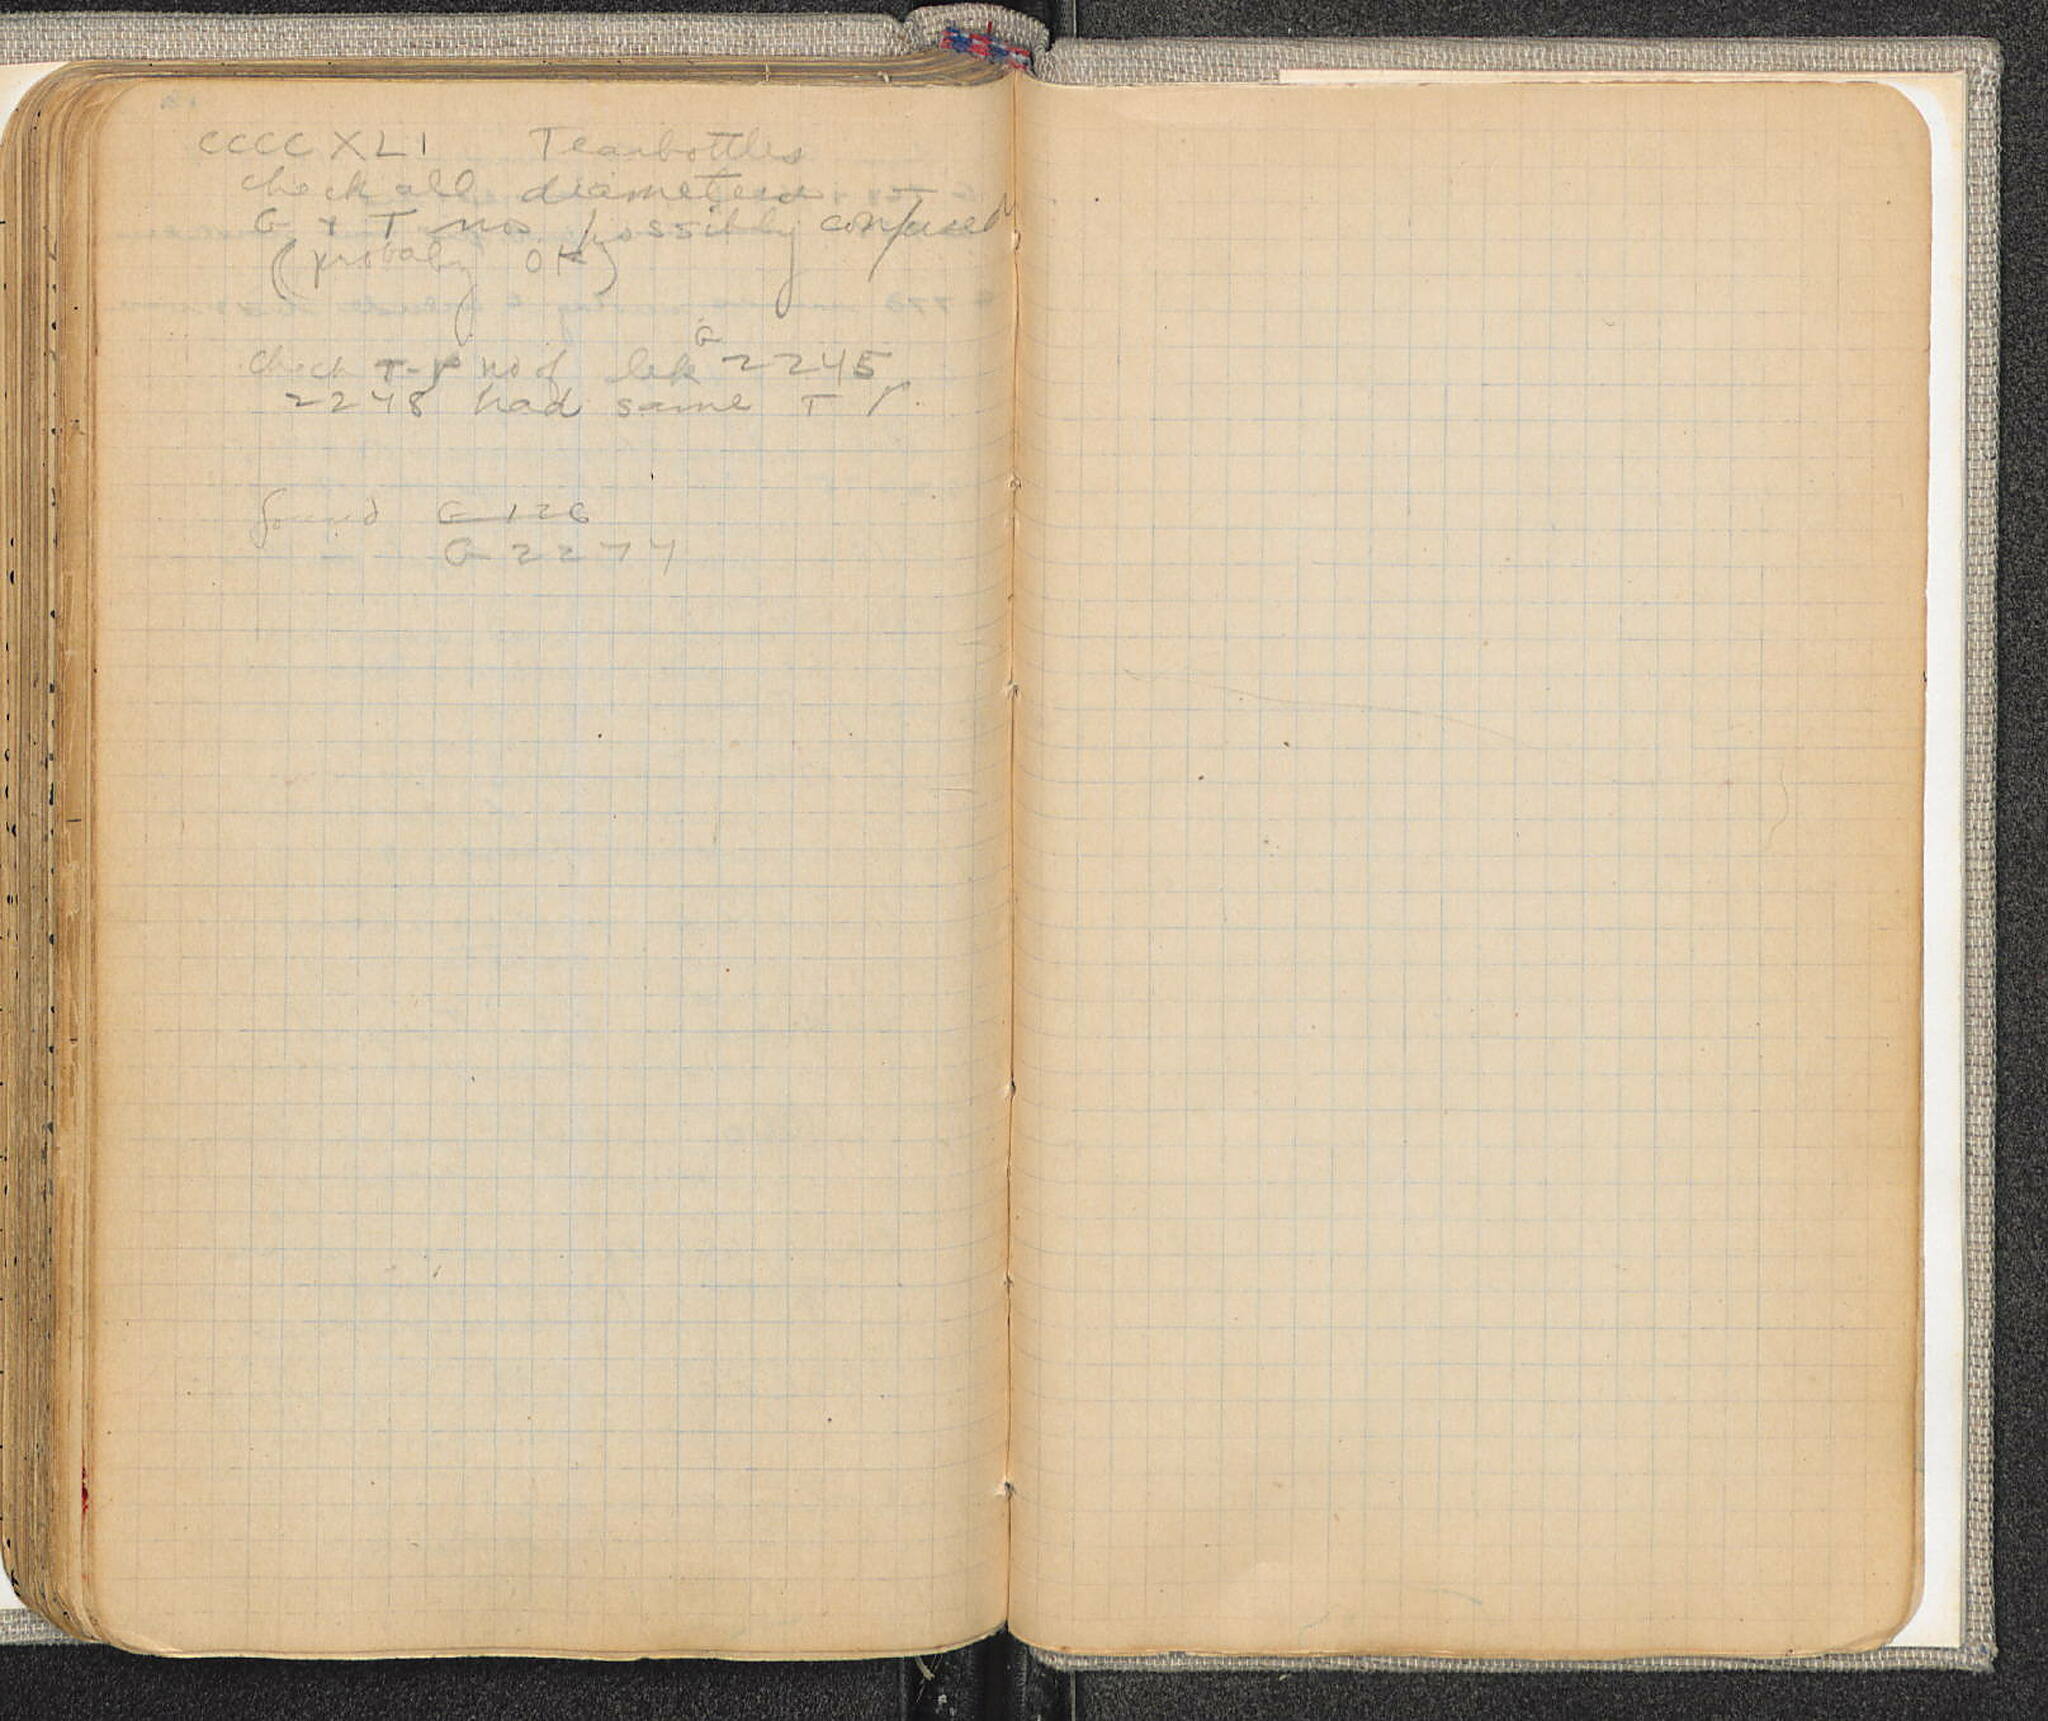 CCCCXLI Tearbottles
check all diameters
G + T nos possibly confused
(probably OK)
check T-p no of lek G 2245
2248 had same T p.
found G 126
G 2277